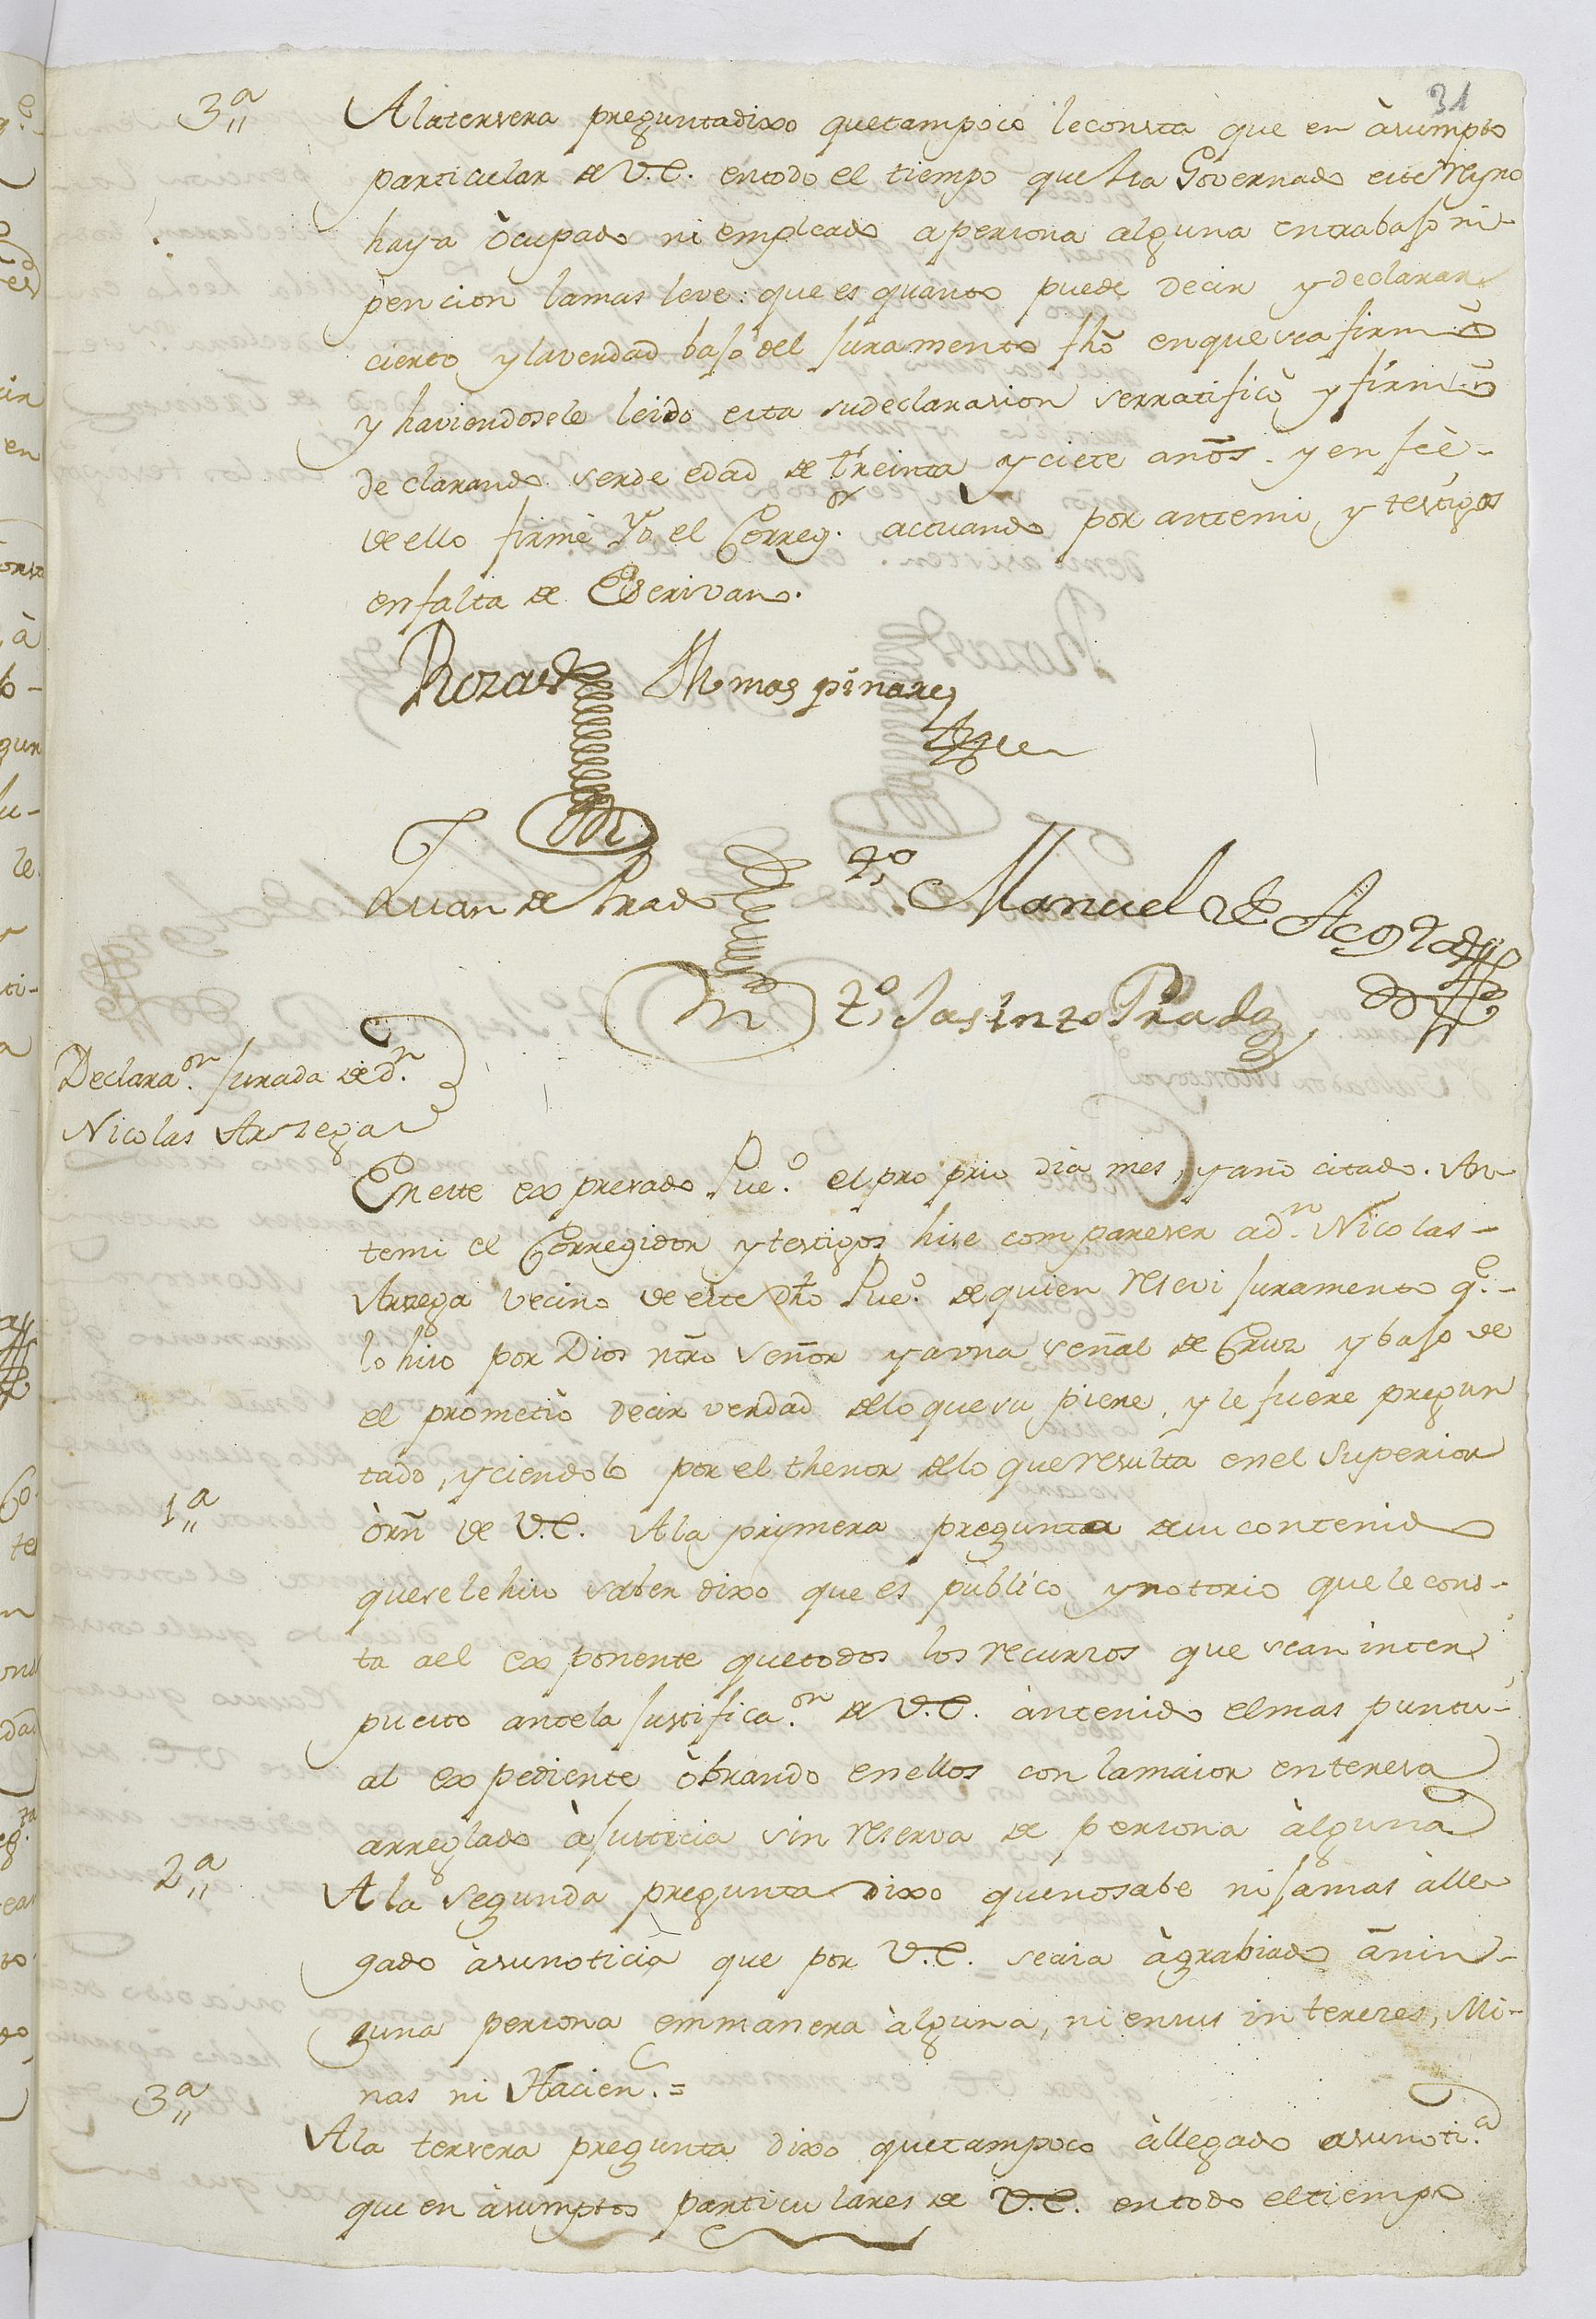 31
3ª A latersera preguntadixo quetampoco leconsta que en àsumpto
particular de V.E. entodo el tiempo que ha Governado este reyno
haya òcupado ni empleado apersona alguna entrabajo ni
pencion lamas leve: que es quanto puede decir ydeclarar
cierto ylaverdad bajo del juramento fho enquesea firmò
y haviendosele leido esta sudeclarasion serratificò y firmò
declarando serde edad de treinta, yciete años. y en fèe-
de ello firmè Yo el Correg.or actuando por antemi y testigos
enfalta de Escrivano.
Rozas Thomas pinares
Juan de Prado to Manuel de Acosta
to Jasinto Prado
Declara.on jurada de d.n
Nicolas Arzega
Eneste expresado Pue.o el proprio dia mes, yaño citado. An
temi el Corregidor ytestigos hise compareser ad.n Nicolas-
Arzega vecino de este dho Pue.o dequien resevi juramento q.e-
lo hiso por Dios ntro señor yauna señal de Cruz ybajo de
el prometiò decir verdad delo quesu piere, y le fuere pregun
tado, yciendolo por el thenor delo queresulta enel Superior
1ª òrn̄ de V.E. Ala primera pregunta desu contenido
quesele hiso saber dixo que es publico, ynotorio que le cons-
ta ael exponente quetodos los recursos que sean inter
puesto antela justifica.on de V.E. àntenido elmas puntu-
al expediente òbrando enellos con lamaior enteresa
arreglado àjusticia sin reserva de persona àlguna
2ª A la segunda pregunta dixo quenosabe nijamas àlle
gado àsunoticia que por V.E. seaia àgrabiado ànin-
guna persona emmanera àlguna, ni ensus intereses, Mi-
nas ni Hacien.s =
3ª Ala tersera pregunta dixo quetampoco àllegado asunoti.a
que en àsumptos particulares de V.E. entodo eltiempo